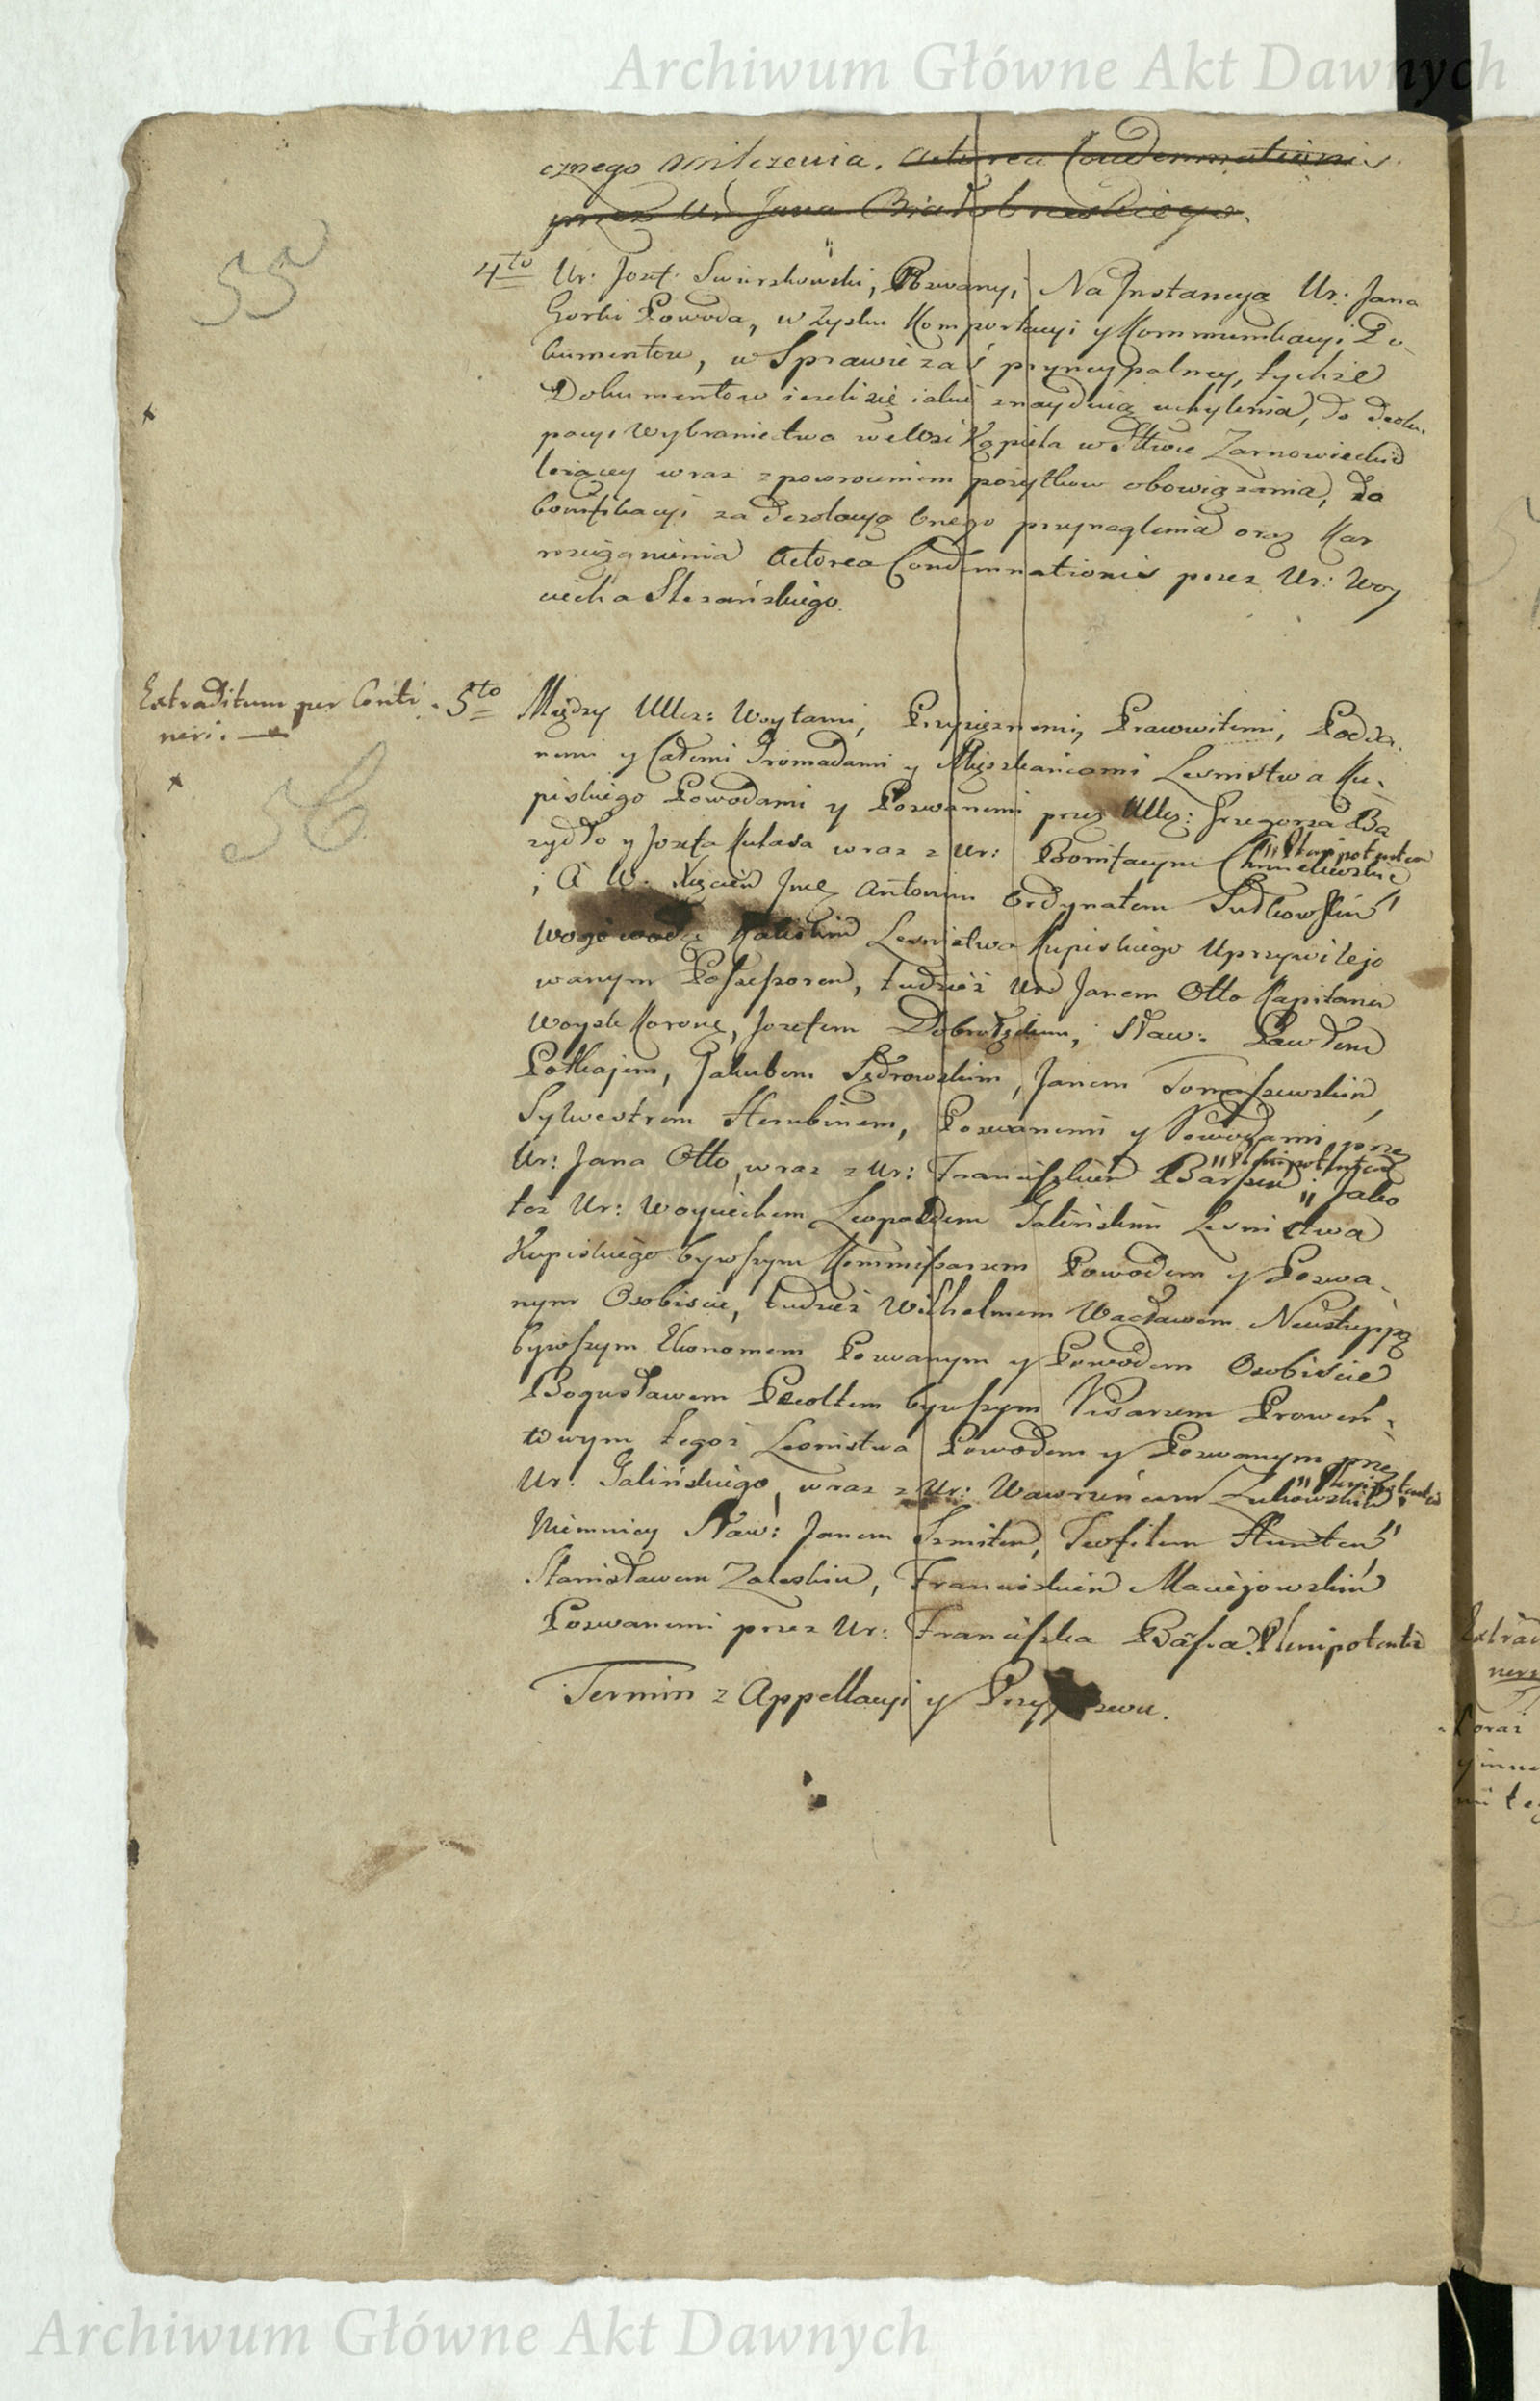 Archiwum Główne Akt Dawnych
cznego milczenia. Actorea Condemnationis
przez Ur. Jana Białobrzeskiego.
55
4to Ur. Jozf. Swierzkowski, Pozwany, Na Instancyą Ur: Jana
Gorki Powoda, w Zysku Komportacyi y Kommunikacyi Do
kumentow, w Sprawie zaś pryncypalney, tychże
Dokumentow ieżeli się iakie znayduią uchylenia, do
pacyi Wybraniectwa we Wsi Kąpiela w Sttwie Zarnowieckid
leżącey wraz z powroceniem pożytkow obowiązania, do
bonifikacyi za dezolacyą onego przynaglenia oraz Kar
rozciągnienia Actorea Condemnationis przez Ur: Woy
ciecha Slezańskiego.
Extraditum per Conti
neri.
5to Między Ucz: Woytami, Przysiężnemi, Prawowitemi, Podda
nemi y Całemi Gromadami y Mieszkańcami Lesnistwa Ku
piskiego Powodami y Pozwanemi przez Ucz: Grzegorza Ba
zydło y Jozefa Kulasa wraz z Ur: Bonifacym Chmielewskie
"Plenipotentem
56
; A W. Xięciem Jmc Antonim Ordynatem Sułkowskim
Wojewodą Kaliskim Lesnistwa Kupiskiego Uprzywilejo
wanym Possessorem, tudzież Ur: Janem Otto Kapitanem
Woysk Koronę, Jozefem, Sław: Pawłem
Połkajem, Jakubem Sędrowskim, Janem Tomaszewskim
Sylwestrem Herubinem, Pozwanemi y Powodami, prze
Ur: Jana Otto, wraz z Ur: Franciszkiem Barssem "Plenipotentem Jako
toż Ur: Woyciechem Leopoldem Galińskim Lesnistwa
Kupiskiego bywszym Kommissarzem Powodem y Pozwa
nym Osobiscie, tudzież Wilhelmem Wacławem Neustuppą
bywszym Ekonomem Pozwanym y Powodem Osobiscie
Bogusławem Peoltem bywszym Pisarzem Prowen
towym tegoż Lesnistwa Powodem y Pozwanym prze
Ur. Galińskiego, wraz z Ur: Wawrzeńcem Zukowskim "Plenipotentem
Niemnicy Sław: Janem Szmitem, Teofilem
Stanisławem Zaleskim, Franciszkiem Maciejowskim
Pozwanemi przez Ur: Franciszka Barssa Plenipotenta
Termin z Appellacyi y Przypozwu.
Archiwum Główne Akt Dawnych